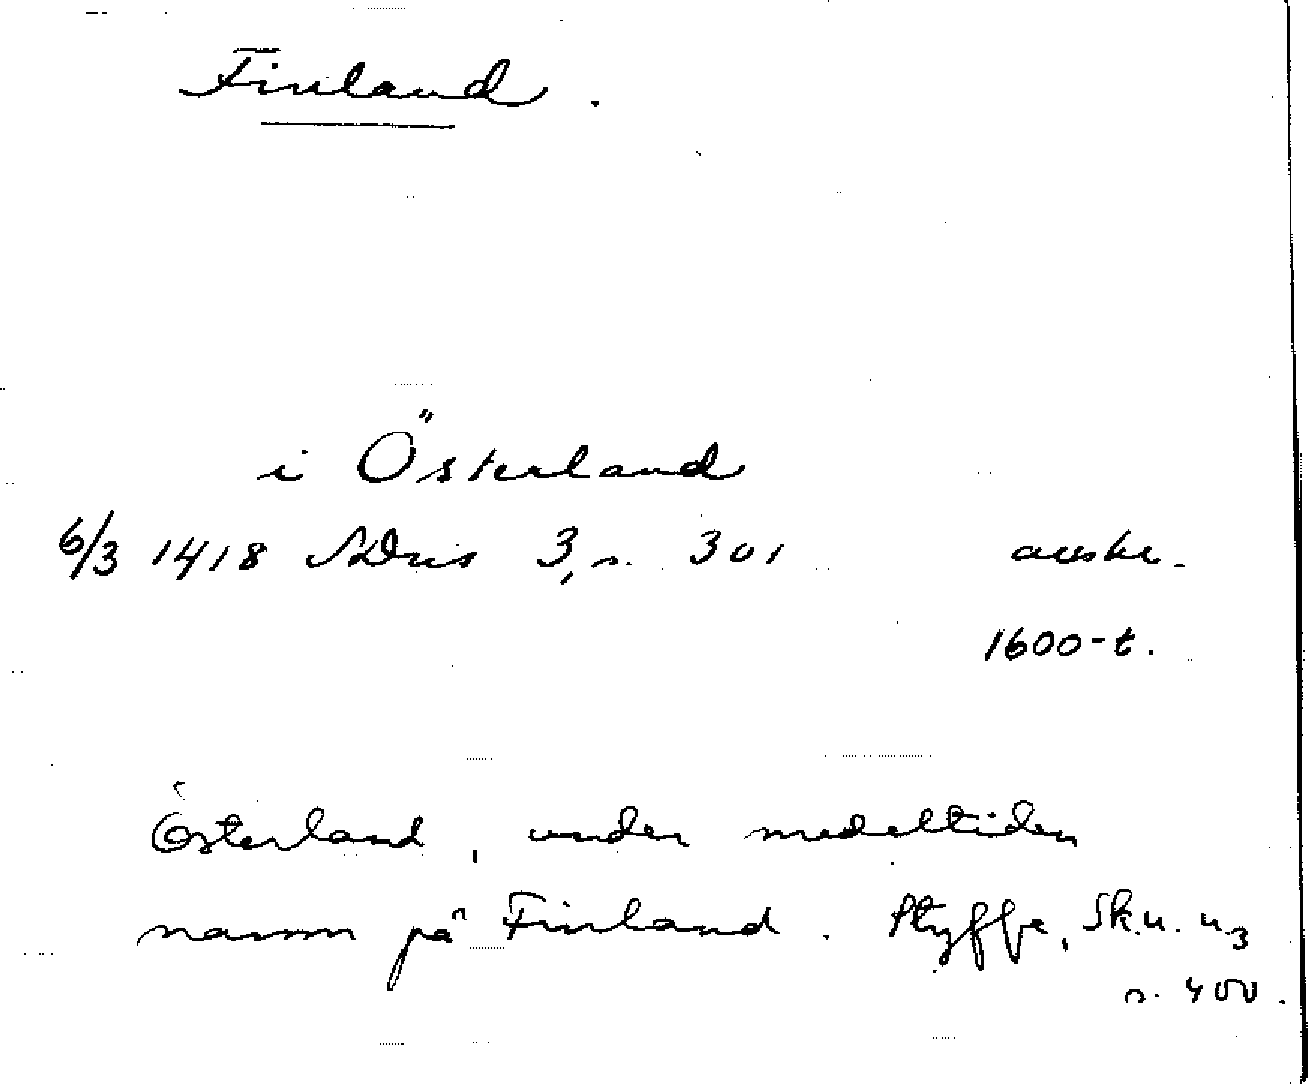 Finland.
i Österland
6/3 1418 SDns 3, s. 301 avskr.
1600-t.
Österland, under medeltiden
namn på Finland. Styffe, Sk. u. u3
s. 400.